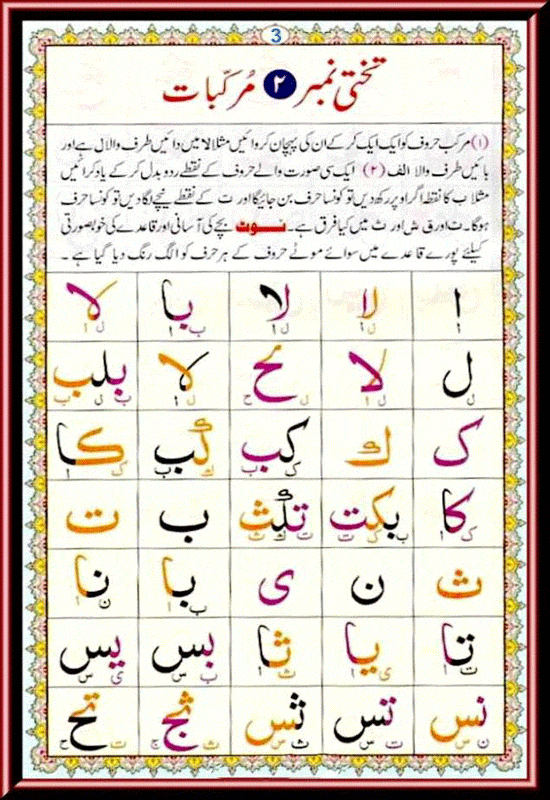 3
تختی نمبر ۲ مُرکّبات
(۱) مرکب حروف کو ایک ایک کر کے ان کی پہچان کروائیں مثلا لا میں دائیں طرف والا ل ہے اور
بائیں طرف والا الف (۲) ایک سی صورت والے حروف کے نقطے ردو بدل کر کے یاد کرائیں
مثلا ب کا نقطہ اگر اوپر رکھ دیں تو کونسا حرف بن جائیگا اور ت کے نقطے نیچے لگا دیں تو کونسا حرف
ہوگا۔ ت اور ق ش اور ث میں کیا فرق ہے۔ نــوٹ بچے کی آسانی اور قاعدے کی خوبصورتی
کیلئے پورے قاعدے میں سوائے موٹے حروف کے ہر حرف کو الگ رنگ دیا گیا ہے۔
ا لا لا با لا
ا ل ا ل ا ب ا ل ا
ل لا لح لا بلب
ل ل ا ل ح ل ا ب ل ب
ک ك کب كب کا
ک ب ك ب ک ا
کا بکت تلث ب ت
ک ا ب ک ت
ث ن ی با نا
ب ا ن ا
تا یا ثا بس یس
ت ا ی ا ث ا ب س ی س
نس تس ثس ثج تح
ن س ت س ث س ث ج ت ح